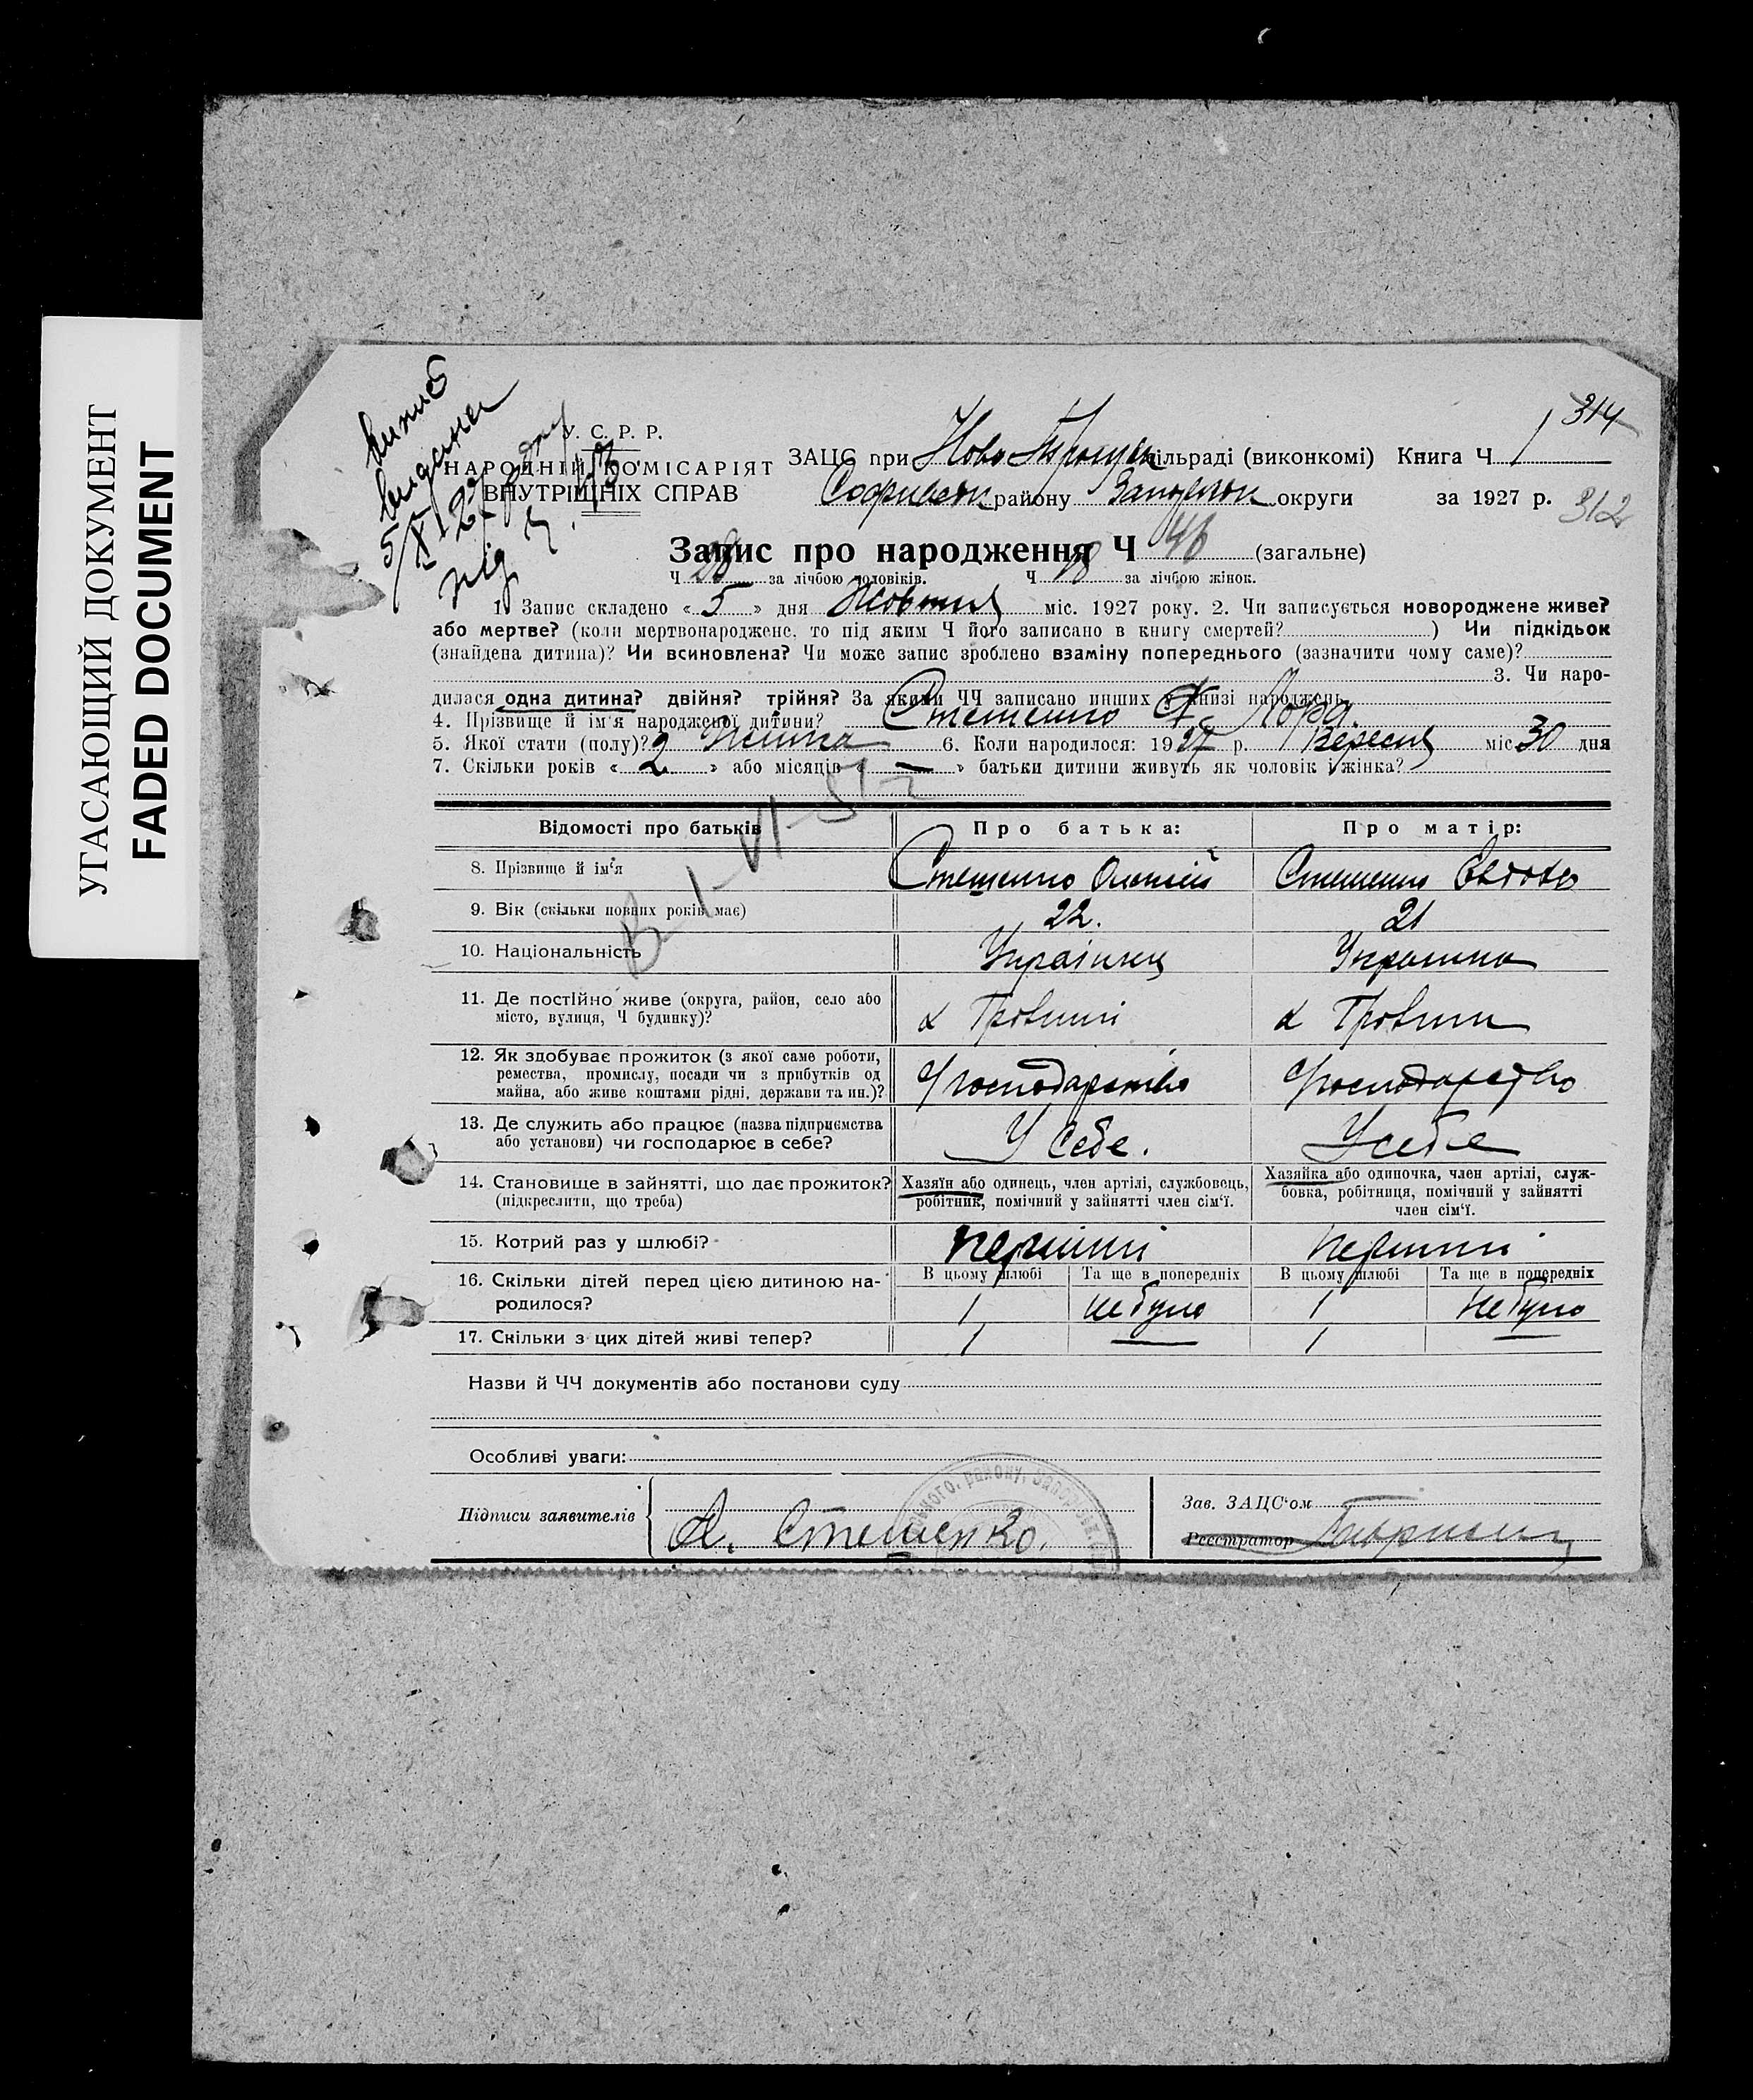 УГАСАЮЩИЙ ДОКУМЕНТ
FADED DOCUMENT
314
312
випис
видана
5/X 27 р
під Ч.
У. С. Р. Р.
НАРОДНІЙ КОМІСАРІЯТ
ВНУТРІШНІХ СПРАВ
ЗАЦС при Ново сільраді (виконкомі) Книга Ч 1
району округи за 1927 р.
Запис про народження Ч 46 (загальне)
Ч 28 за лічбою чоловіків. Ч 18 за лічбою жінок.
1. Запис складено « 5 » дня Жовтня міс. 1927 року. 2. Чи записується новороджене живе?
або мертве? (коли мертвонароджене, то під яким Ч його записано в книгу смертей? ) Чи підкідьок
(знайдена дитина)? Чи всиновлена? Чи може запис зроблено взаміну попереднього (зазначити чому саме)?
3. Чи наро-
дилася одна дитина? двійня? трійня? За якими ЧЧ записано инших у книзі народжень
4. Прізвище й ім'я народженої дитини? Стешенко Лора.
5. Якої стати (полу)? 2 Жінка 6. Коли народилося: 1927 р. Вересня міс 30 дня
7. Скільки років « 2 » або місяців « — » батьки дитини живуть як чоловік і жінка?
Відомості про батьків Про батька: Про матір:
8. Прізвище й ім'я Стешенко Олексій Стешенко
9. Вік (скільки повних років має) 22. 21
10. Національність Українец Українка
11. Де постійно живе (округа, район, село або
місто, вулиця, Ч будинку)?
12. Як здобуває прожиток (з якої саме роботи,
ремества, промислу, посади чи з прибутків од
майна, або живе коштами рідні, держави та ин.)? господарство господарство
13. Де служить або працює (назва підприємства
або установи) чи господарює в себе? У себе. У себе
14. Становище в зайнятті, що дає прожиток?
(підкреслити, що треба)
Хазяїн або одинець, член артілі, службовець,
робітник, помічний у зайнятті член сім'ї.
Хазяйка або одиночка, член артілі, служ-
бовка, робітниця, помічний у зайнятті
член сім'ї.
15. Котрий раз у шлюбі? перший перший
16. Скільки дітей перед цією дитиною на-
родилося?
В цьому шлюбі Та ще в попередніх В цьому шлюбі Та ще в попередніх
1 не було 1 не було
17. Скільки з цих дітей живі тепер? 1 — 1 —
Назви й ЧЧ документів або постанови суду
Особливі уваги:
Підписи заявителів А. Стешенко.
Зав. ЗАЦС'ом
Реєстратор